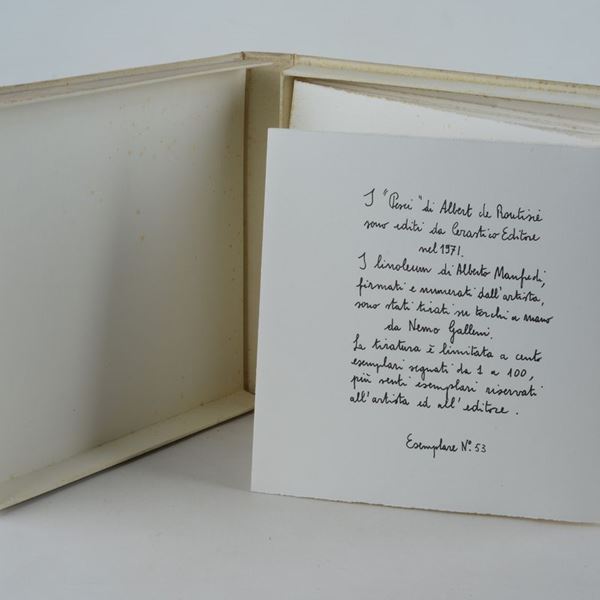 I "Pesci" di Albert de Routisie
sono editi da Cerastico Editore
nel 1971.
I linoleum di Alberto Manfredi,
firmati e numerati dall'artista,
sono stati tirati su torchi a mano
da Nemo Galleni.
La tiratura è limitata a cento
esemplari segnati da 1 a 100,
più venti esemplari riservati
all'artista ed all'editore.
Esemplare N° 53